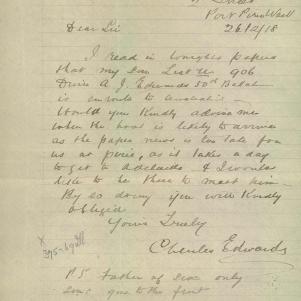 Port Pirie West
26/2/18
Dear Sir
I read in tonights papers
that my Son Lieut 906
Driver A J Edwards 50th Battal
is enroute to Australia.
Would you Kindly advise me
when the boat is likely to arrive
as the paper news is too late for
us at pirie, as it takes a day
to get to Adelaide & I would
like to be there to meet him.
By so doing you will Kindly
oblige
Yours Truly
Charles Edwards
PS Father of six only
sons gone to the front